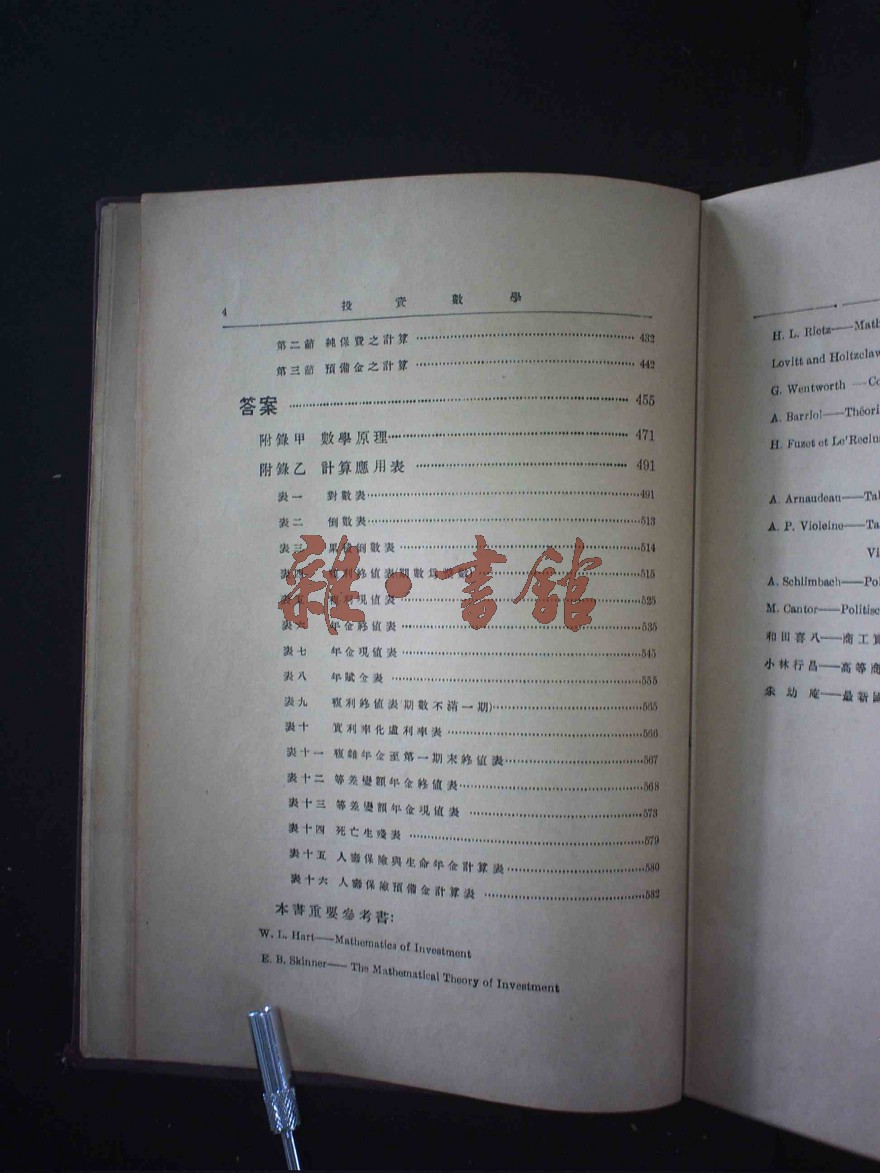 4 投資數學
第二節 純保費之計算 432
第三節 預備金之計算 442
答案 455
附錄甲 數學原理 471
附錄乙 計算應用表 491
表一 對數表 491
表二 倒數表 513
表三 倒數表 514
表四 複利終值表(期數爲整數) 515
表五 複利現值表 525
表六 年金終值表 535
表七 年金現值表 545
表八 年賦金表 555
表九 複利終値表(期數不滿一期) 565
表十 實利率化虛利率表 566
表十一 複雜年金至第一期末終值表 567
表十二 等差變額年金終值表 568
表十三 等差變額年金現值表 573
表十四 死亡生殘表 579
表十五 人壽保險與生命年金計算表 580
表十六 人壽保險預備金計算表 582
本書重要參考書:
W. L. Hart——Mathematics of Investment
E. B. Skinner—— The Mathematical Theory of Investment
雜·書館
H. L. Rietz——Math
Lovitt and Holtzclaw
G. Wentworth —Co
A. Barriol——Théori
H. Fuzet et Le'Reclus
A. Arnaudeau——Tab
A. P. Violeine——Ta
Vi
A. Schlimbach——Pol
M. Cantor——Politisc
和田喜八——商工實
小林行昌——高等商
幼庵——最新國